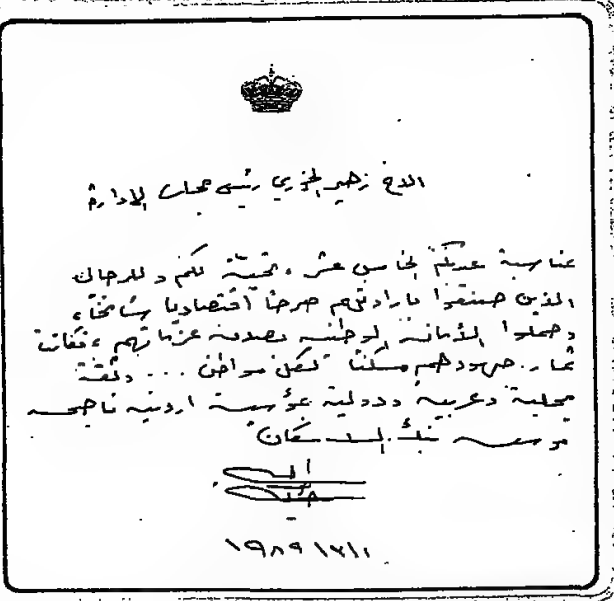 الاخ زهير الخوري رئيس مجلس الإدارة
بمناسبة عيدكم الخامس عشر، تحية لكم وللرجال
الذين صنعوا بارادتهم صرحاً اقتصادياً شامخاً،
وحملوا الأمانة الوطنية بصدق عزماتهم، فكانت
ثمار جهودهم مسكناً لكل مواطن ... وثقة
محلية وعربية ودولية بمؤسسة اردنية ناجحة
مؤسسة بنك الاسكان
١٩٨٩/١٢/١٠